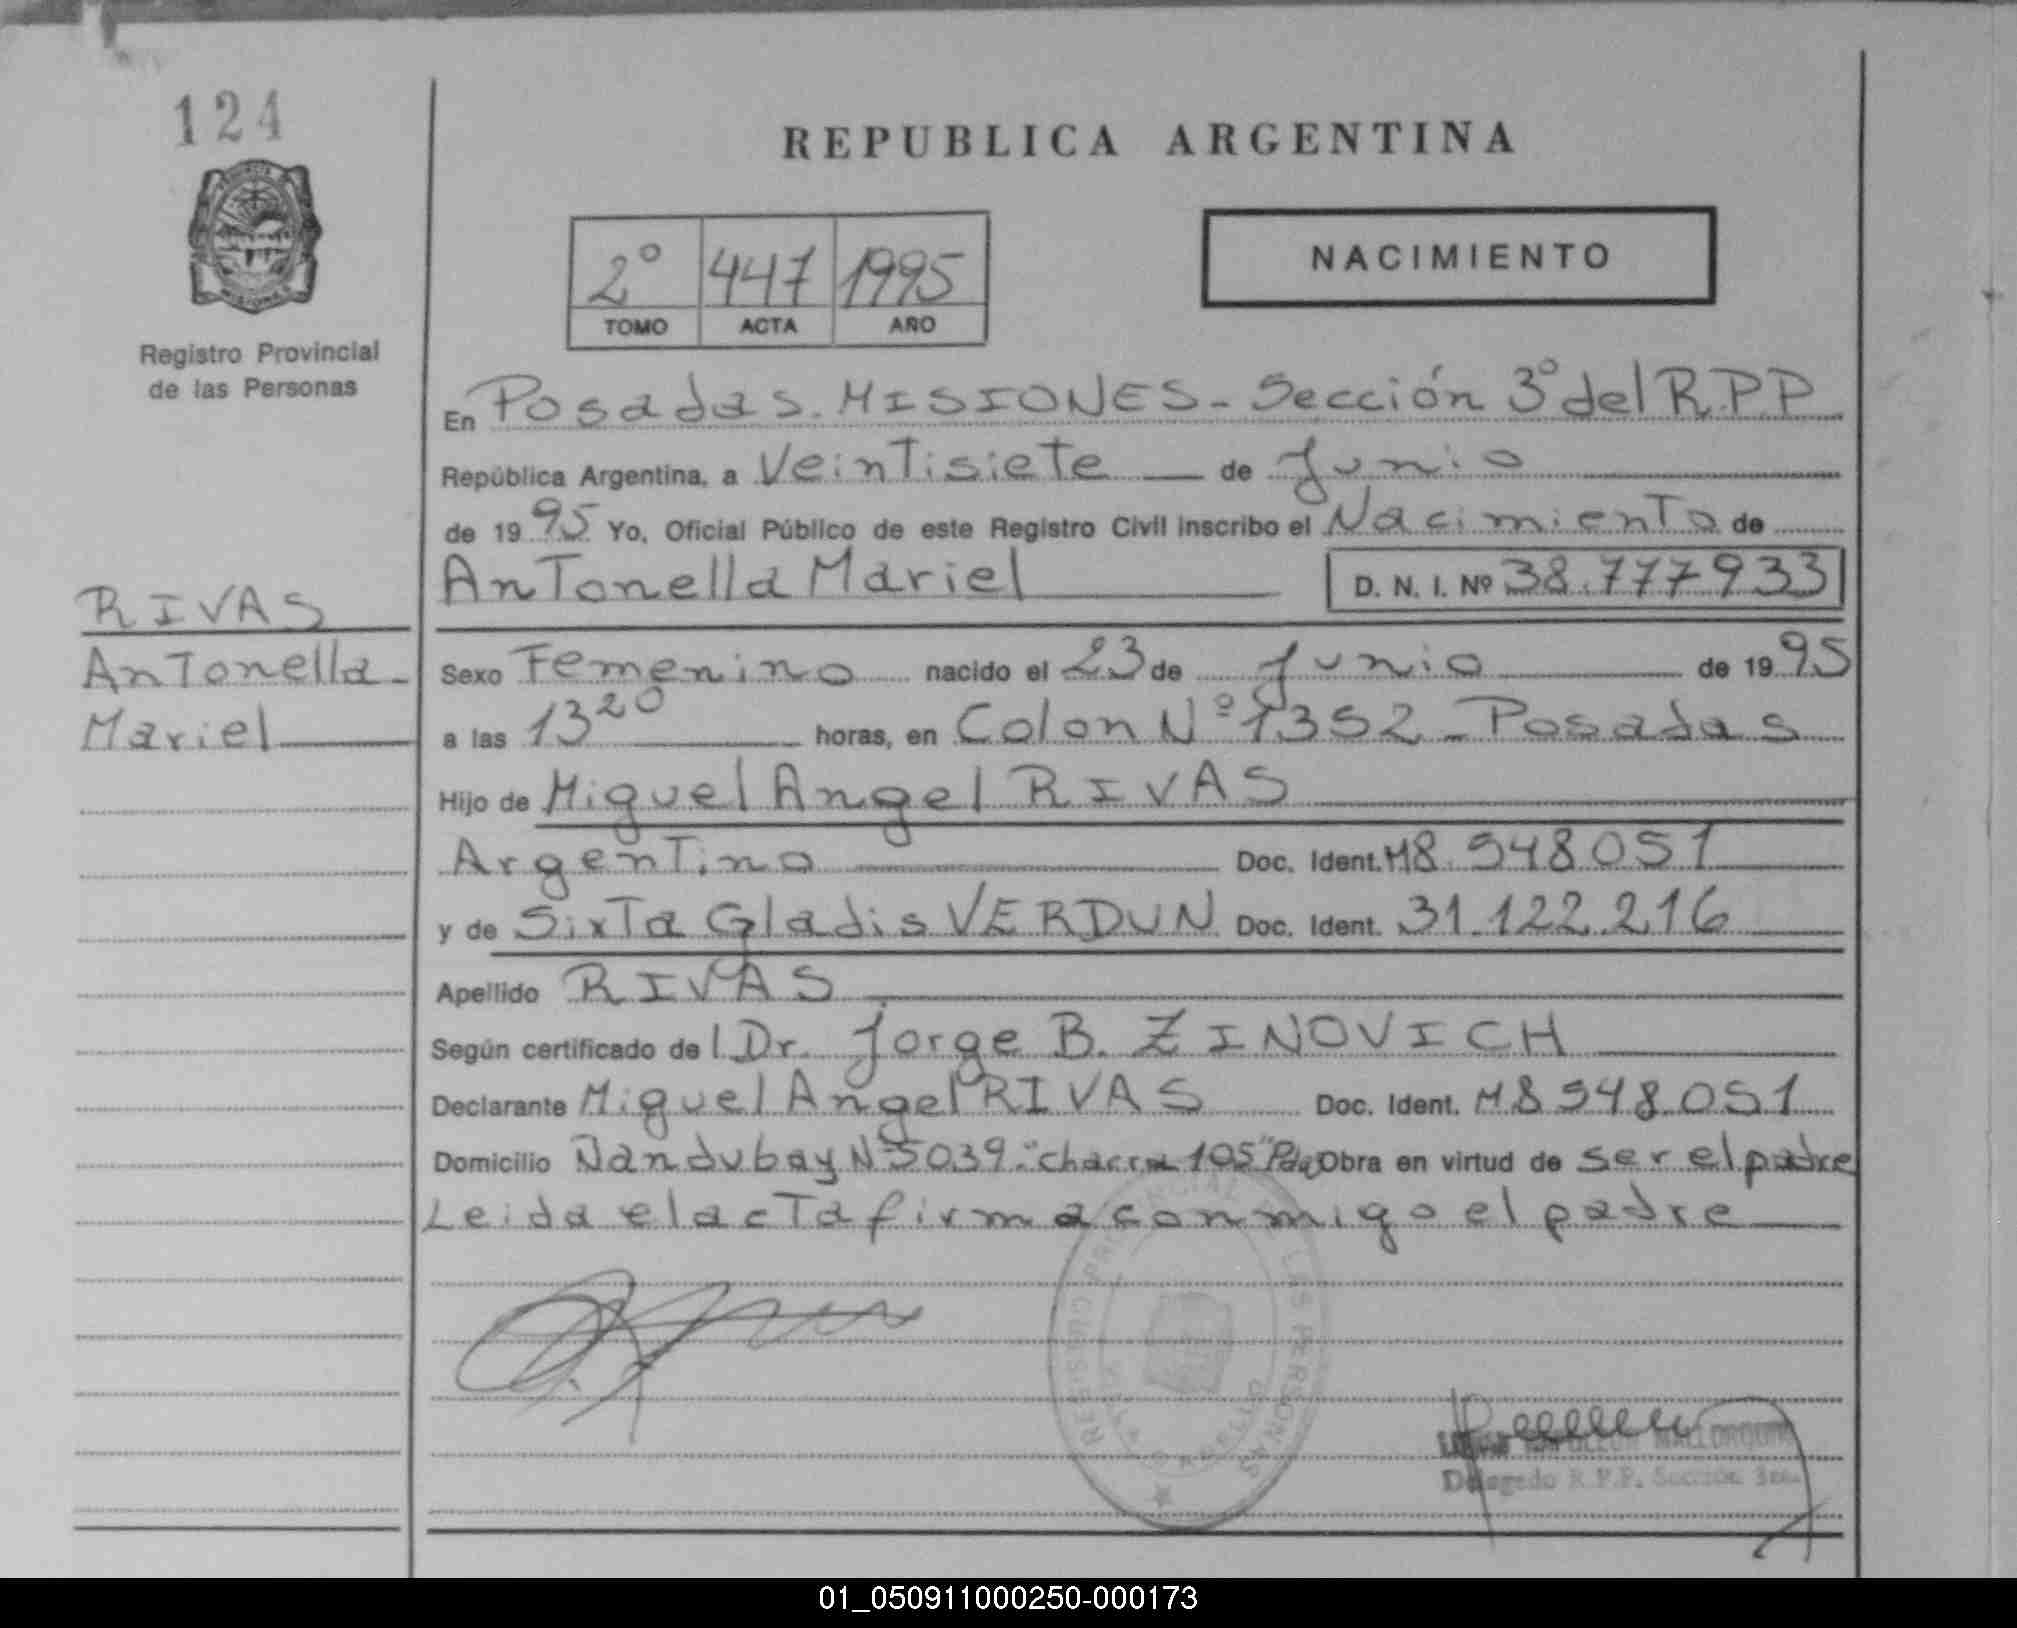 124
REPUBLICA ARGENTINA
NACIMIENTO
2° 447 1995
TOMO ACTA AÑO
Registro Provincial
de las Personas
En Posadas. MISIONES - Sección 3° del R.P.P
República Argentina, a Veintisiete de Junio
de 1995 Yo, Oficial Público de este Registro Civil inscribo el Nacimiento de
Antonella Mariel D. N. I. Nº 38.777933
RIVAS
Antonella -
Mariel
Sexo Femenino nacido el 23 de Junio de 1995
a las 13 20 horas, en Colon Nº 1352 - Posadas
Hijo de Miguel Angel RIVAS
Argentino Doc. Ident. M8.548051
y de Sixta Gladis VERDUN Doc. Ident. 31.122.216
Apellido RIVAS
Según certificado de l Dr. Jorge B. ZINOVICH
Declarante Miguel Angel RIVAS Doc. Ident. M8548051
Domicilio Ñandubay Nº 5039. "chacra 105" Pdas Obra en virtud de ser el padre
Leida el acta firma conmigo el padre
REGISTRO PROVINCIAL DE LAS PERSONAS
Delegado R.P.P. Sección 3ra.
01_050911000250-000173